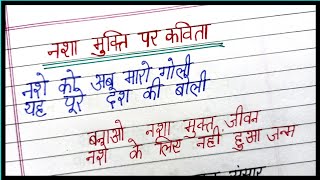 नशा मुक्ति पर कविता
नशे को अब मारो गोली
यह पूरे देश की बोली
बनाओ नशा मुक्त जीवन
नशे के लिए नहीं हुआ जन्म